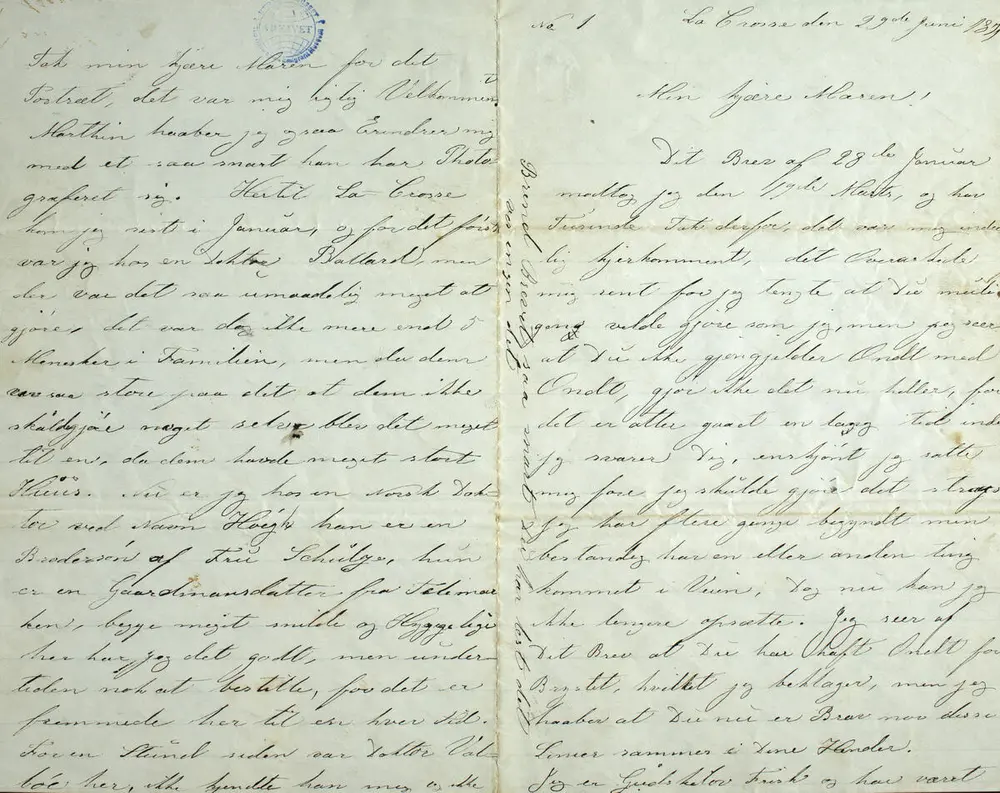 No 1 La Crosse den 29de Juni
Min kjære Maren!
Dit Brev af 28de Januar
modtog jeg den 19de Marts, og har
Tusinde Tak derfor, det var mig inder
lig kjerkomment, det Overaskede
mig sent for jeg tengte at Du muligens
gang vilde gjøre som jeg, men jeg seer
at Du ikke gjengjelder Ondt med
Ondt, gjør ikke det nu heller, for
det er atter gaaet en lang tid inden
jeg svarer Dig, enskjønt jeg satte
mig fore jeg skulde gjøre det strags
jeg har flere gange begyndt men
bestandig har en eller anden ting
kommet i Veien, Dog nu kan jeg
ikke lengere opsætte. Jeg seer af
Dit Brev at Du har haft Ondt for
Brystet, hvilket jeg beklager, men jeg
haaber at Du nu er Brav nov disse
Linier sammes i Dine Hender.
Jeg er Gudskelov Frisk og har været
Tak min kjære Maren for det
Postræt, det var mig rigtig Velkomment
Marthin haaber jeg ogsaa Erindrer mig
med et saa snart han har Photo
graferet sig. Hertil La Crosse
kom jeg sist i Januar, og for det først
var jeg hos en Doktor Ballard, men
der var det saa umaadelig meget at
gjøre, det var dog ikke mere end 5
Mennesker i Familien, men da dem
var saa store paa det at dem ikke
skuldgjøre noget selv blev det meget
til en, da dem havde meget stort
Huus. Nu er jeg hos en Norsk Dok-
tor ved Navn Høegh han er en
Brodersøn af Fru Schulze, hun
er en Gaardmansdatter fra Telemar
ken, begge meget snilde og Hyggelige
her har jeg det godt, men under-
tiden nok at bestille, for det er
fremmede her til en hver Tid.
For en Stund siden var Doktor
her, ikke kjendte han mig og ikke
Brend Brevet saa snart Du har lest det
saa ingen det